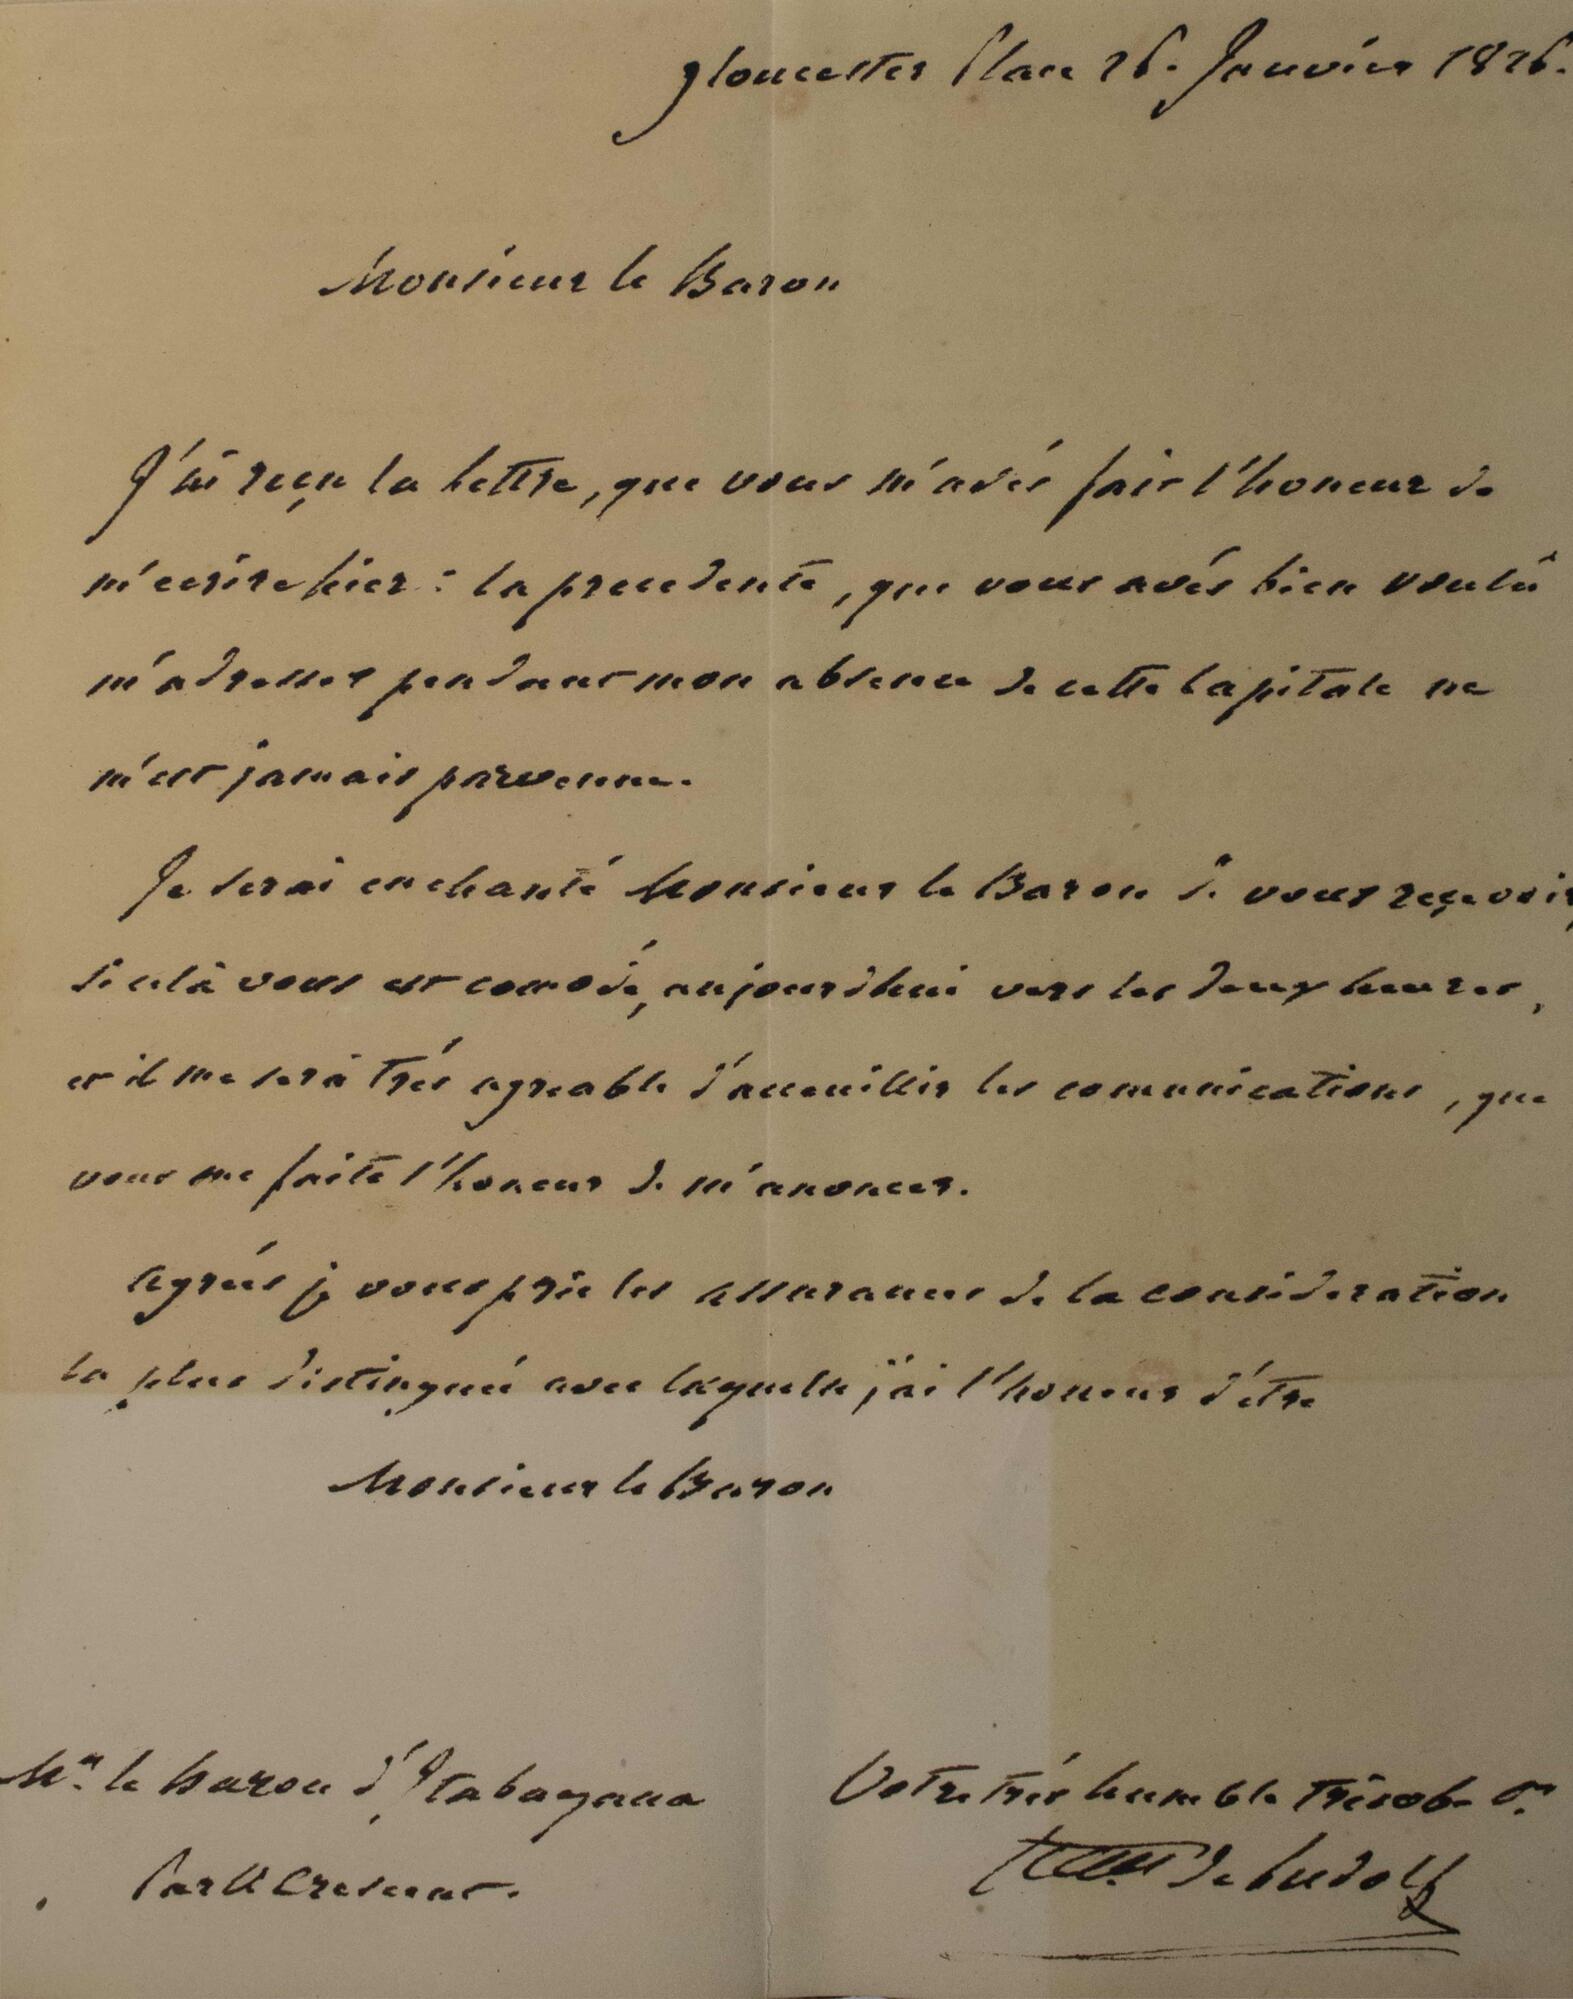 Gloucester Place 26. Janvier 1826.
Monsieur le Baron
J'ai reçu la lettre, que vous m'avés fait l'honeur de
m'ecrire hier: la precedente, que vous avés bien voulû
m'adresser pendant mon absence de cette Capitale ne
m'est jamais parvenue.
Je serai enchanté Monsieur le Baron de vous reçevoir,
si celà vous est comode, aujourdhui vers les deux heures,
et il me serà trés agreable d'accueillir les comunications, que
vous me faite l'honeur de m'anoncer.
Agreés je vous prie les assurances de la consideration
la plus distinguée avec laquelle j'ai l'honeur d'étre
Monsieur le Baron
Mr. le Baron d'Itabayana
Park Crescent.
Votre trés humble trés ob. Sr.
de Ludolf